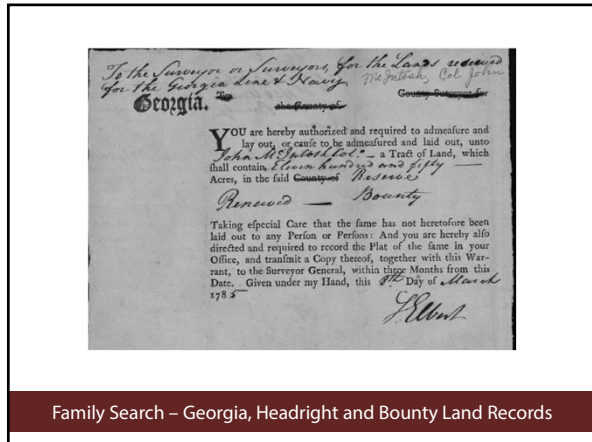 To the Surveyor or Surveyors, for the Lands reserved
for the Georgia Line & Navy McIntosh, Col John
Georgia. To the County of County Surveyor for
YOU are hereby authorized and required to admeasure and
lay out, or cause to be admeasured and laid out, unto
John McIntosh Colo. — a Tract of Land, which
shall contain Eleven hundred and fifty —
Acres, in the said County of Reserve
Renewed — Bounty
Taking especial Care that the same has not heretofore been
laid out to any Person or Persons: And you are hereby also
directed and required to record the Plat of the same in your
Office, and transmit a Copy thereof, together with this War-
rant, to the Surveyor General, within three Months from this
Date. Given under my Hand, this 8th Day of March
1785
S Elbert
Family Search – Georgia, Headright and Bounty Land Records